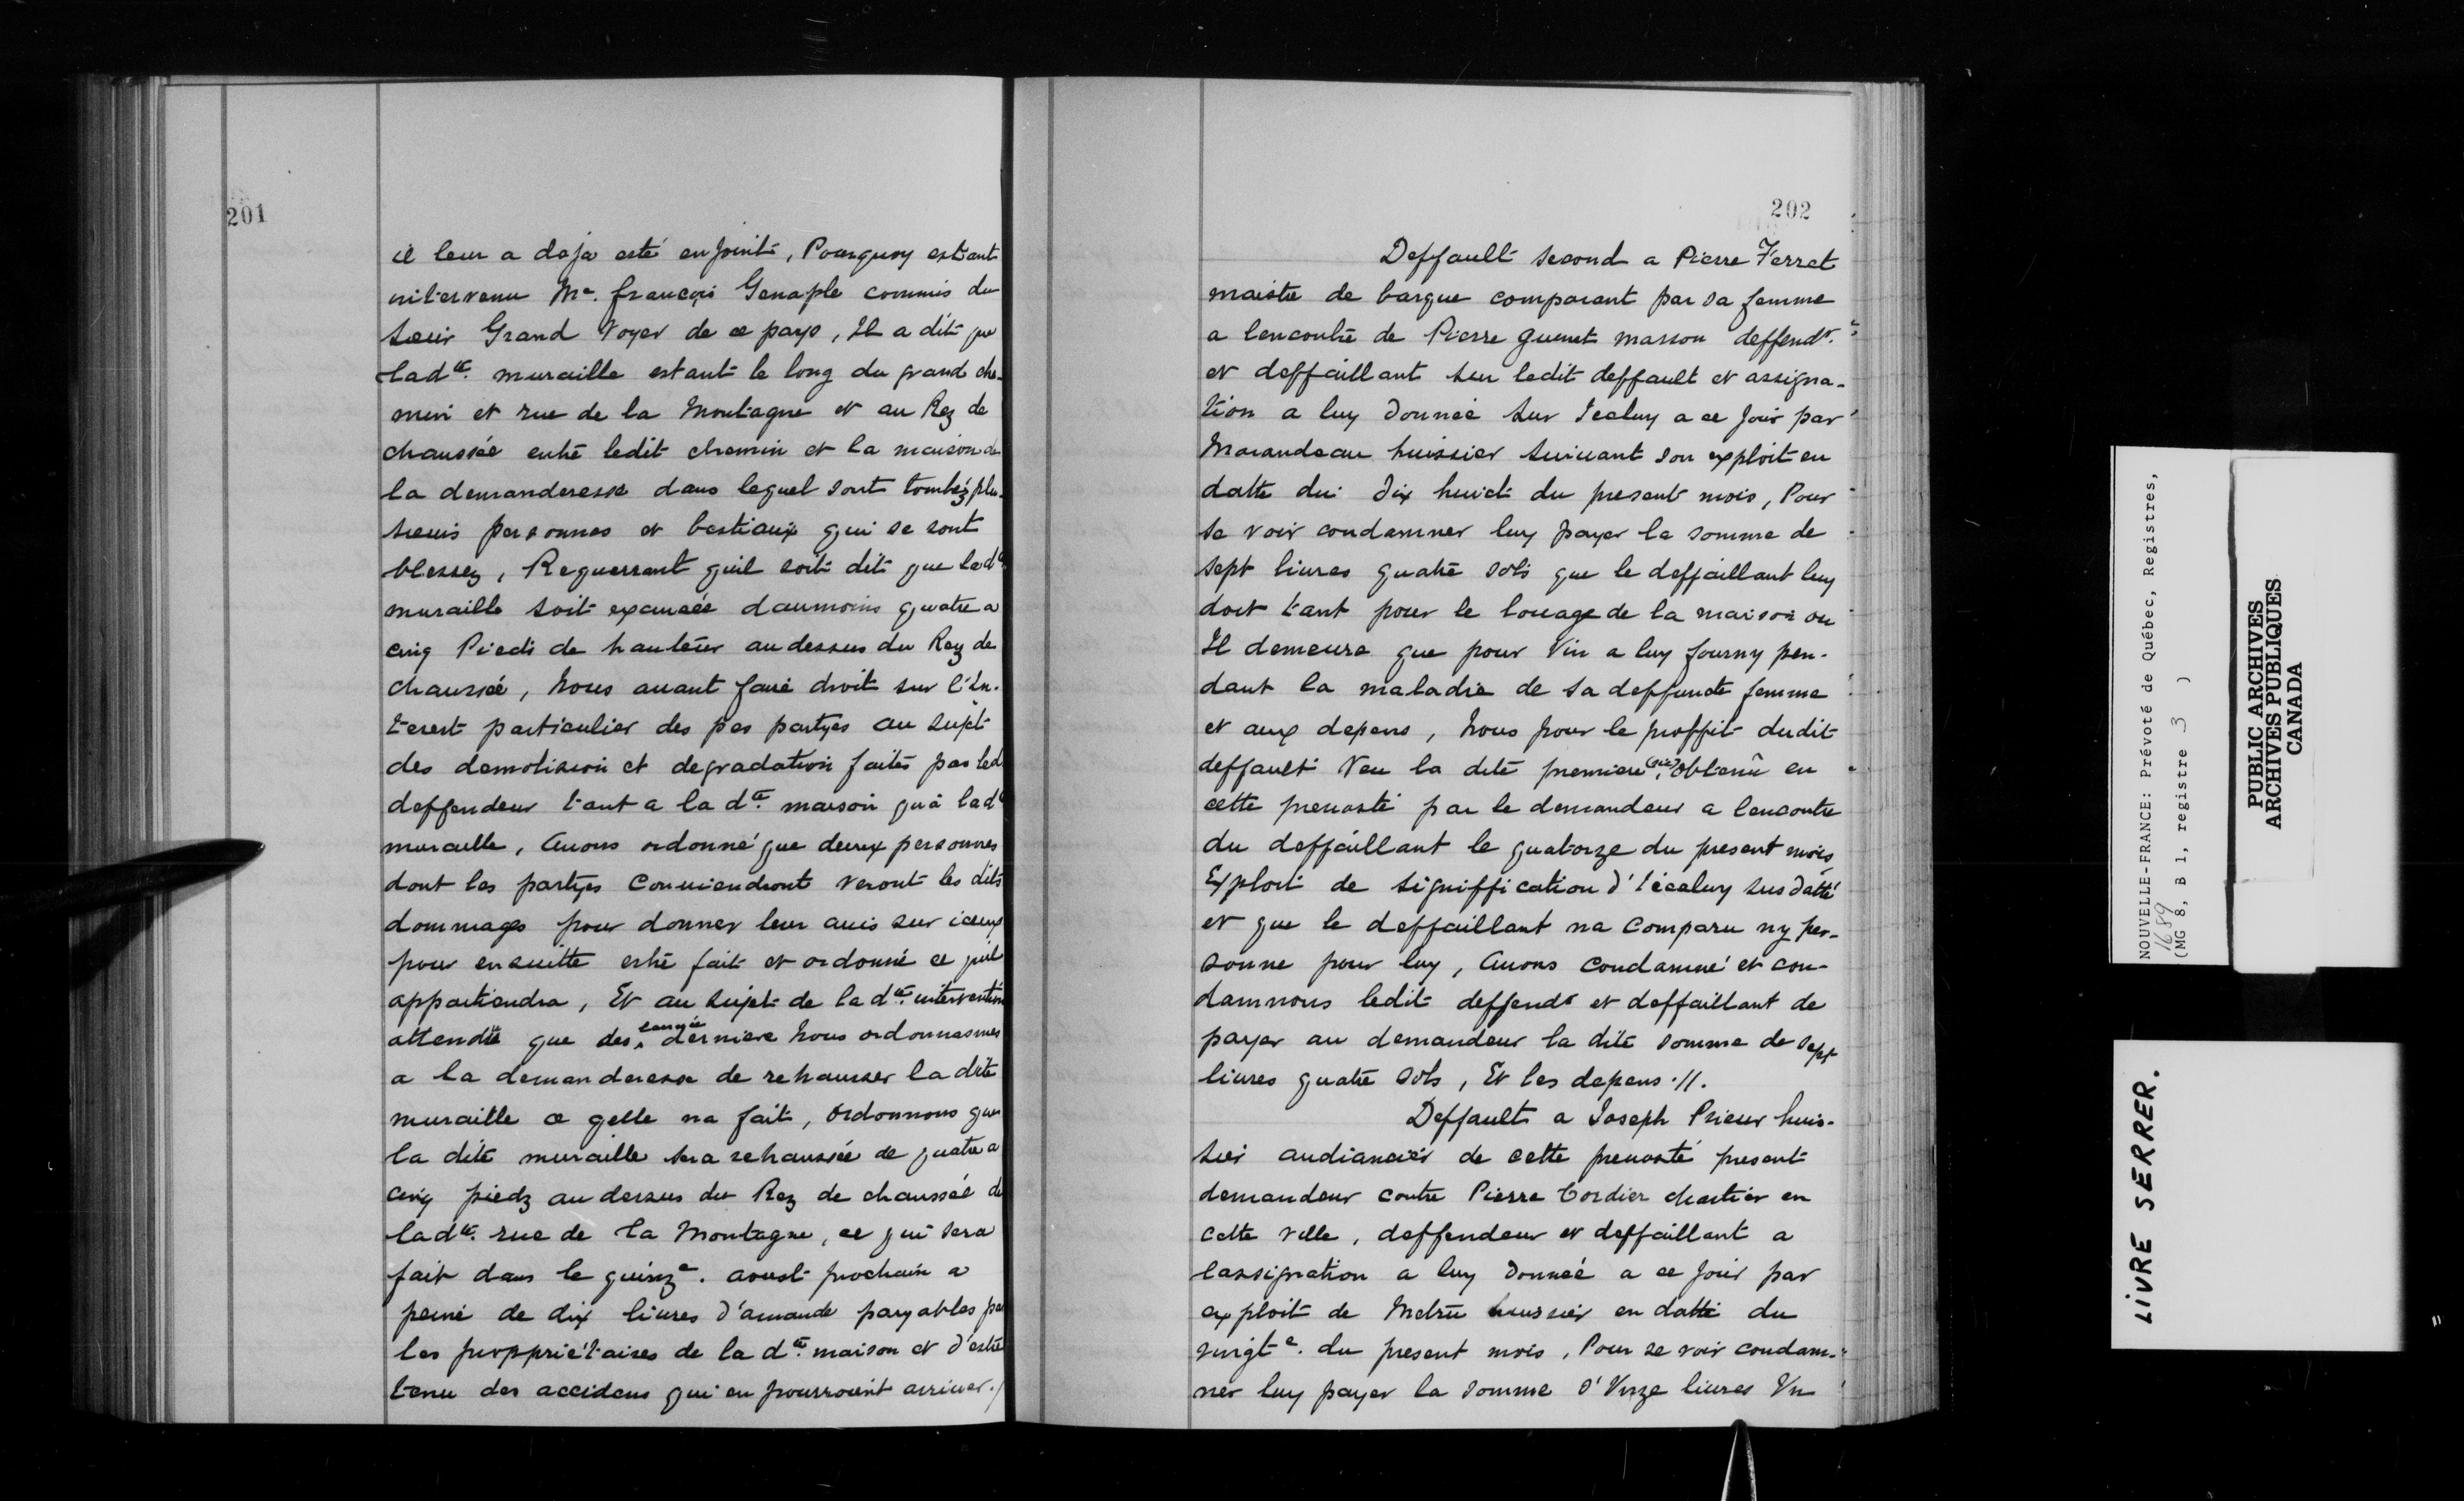 201
il leur a deja esté enjoint, Pourquoy estant
intervenu Me. françois Genaple commis du
sieur Grand Voyer de ce pays, Il a dit que
ladte. muraille estant le long du grand che-
min et rue de la Montagne et au Rez de
chaussée entre ledit chemin et la maison de
la demanderesse dans lequel sont tombéz plu-
sieurs personnes et bestiaux qui se sont
blessez, Requerrant quil soit dit que ladte
muraille soit exaucée daumoins quatre a
cinq Pieds de hauteur au dessus du Rez de
chaussée, Nous auant faire droit sur l'In-
terest particulier des pes partyes au sujet
des demolision et degradation faites par led
deffendeur tant a la dte. maison qu'a ladte
muraille, Auons ordonné que deux personnes
dont les partyes Conuiendront veront les dits
dommages pour donner leur auis sur iceux
pour ensuitte estre fait et ordonné ce quil
appartiendra, Et au sujet de la dte. intervention
attendu que des lannée derniere Nous ordonnasmes
a la demanderesse de rehausser la dite
muraille ce qelle na fait, Ordonnons que
la dite muraille sera rehaussée de quatre a
cinq piedz au dessus du Rez de chaussée de
ladte. rue de la Montagne, ce qui sera
fait dans le quinze. aoust prochain a
peine de dix liures d'amande payables par
les propprietaires de la dte. maison et d'estre
tenu des accidens qui en pourroient arriuer./
202
Deffault second a Pierre Ferret
maistre de barque comparant par sa femme
a lencontre de Pierre Guenet masson deffendr.
et deffaillant sur ledit deffault et assigna-
tion a luy donnée sur Iceluy a ce jour par
Marandeau huissier suiuant son exploit en
datte du dix huict du present mois, Pour
se voir condamner luy payer la somme de
sept liures quatre sols que le deffaillant luy
doit tant pour le louage de la maison ou
Il demeure que pour Vin a luy fourny pen-
dant la maladie de sa deffuncte femme
et aux depens, Nous pour le proffit dudit
deffault Veu la dite premiere (sic), Obtenu en
cette preuosté par le demandeur a lencontre
du deffaillant le quatorze du present mois
Exploit de signiffication d'Icceluy susdatté
et que le deffaillant na Comparu ny per-
sonne pour luy, Auons Condamné et con-
damnons ledit deffendr et deffaillant de
payer au demandeur la dite somme de sept
liures quatre sols, Et les depens .//.
Deffault a Joseph Prieur huis-
sier audiancier de cette preuosté present
demandeur contre Pierre Cordier chartier en
cette ville, deffendeur et deffaillant a
lassignation a luy donneé a ce jour par
exploit de Metru huissier en datte du
vingte. du present mois, Pour se voir condam-
ner luy payer la somme d'Vnze liures Vn
NOUVELLE-FRANCE: Prévoté de Québec, Registres,
1689
(MG 8, B 1, registre 3 )
PUBLIC ARCHIVES
ARCHIVES PUBLIQUES
CANADA
LIVRE SERRER.